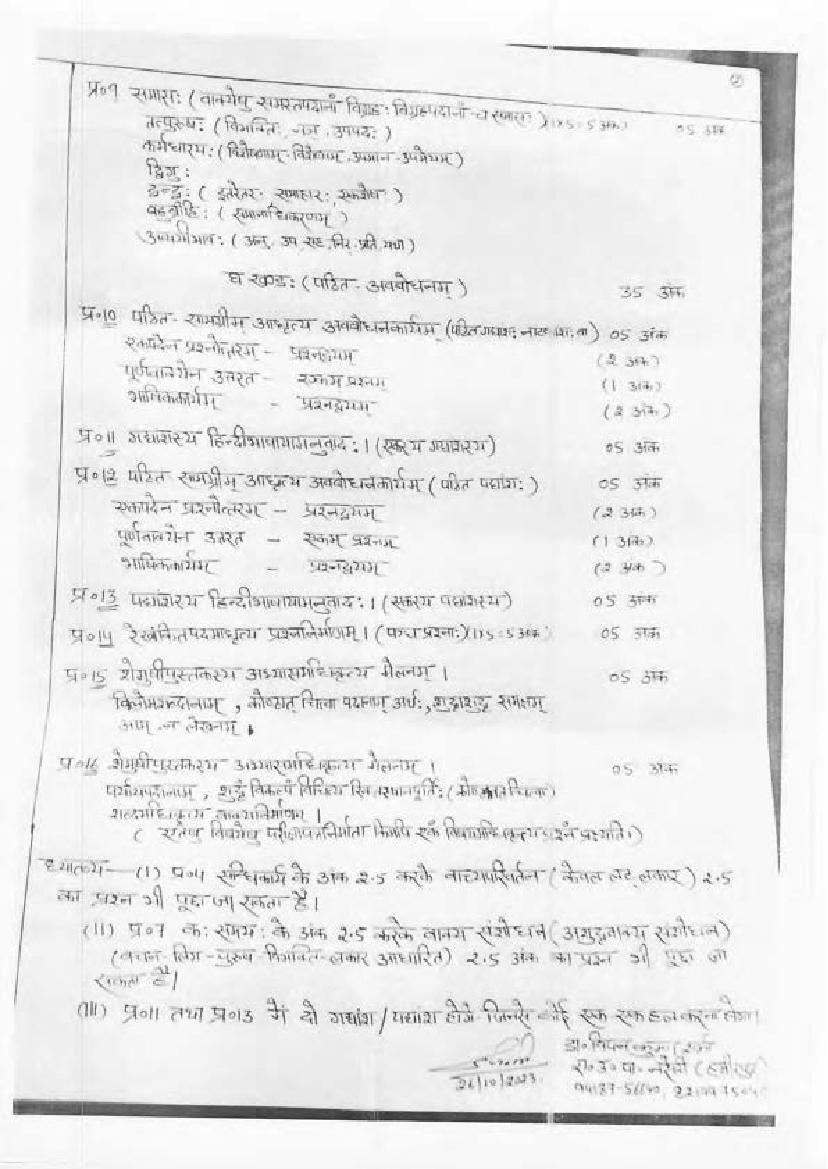 २
प्र०9 समासः (वाक्येषु समस्तपदानां विग्रहः विग्रहपदानां च समासः) 1x5=5 अंक) 05 अंक
तत्पुरुषः (विभक्तिः, नञ्, उपपदः)
कर्मधारयः (विशेषणम्-विशेष्यम्, उपमान-उपमेयम्)
द्विगुः
द्वन्द्वः (इतरेतर- समाहारः, एकशेष)
बहुव्रीहिः (समानाधिकरणम्)
अव्ययीभावः (अनु, उप, सह, निर्, प्रति, यथा)
घ खण्डः (पठित-अवबोधनम्) 35 अंक
प्र०10 पठित-सामग्रीम् आधृत्य अवबोधनकार्यम् (पठितगद्यांशः नाट्यांशः वा) 05 अंक
एकपदेन प्रश्नोत्तरम् - प्रश्नद्वयम् (2 अंक)
पूर्णवाक्येन उत्तरत - एकम् प्रश्नम् (1 अंक)
भाषिककार्यम् - प्रश्नद्वयम् (2 अंक)
प्र०11 गद्यांशस्य हिन्दीभाषायामनुवादः। (एकस्य गद्यांशस्य) 05 अंक
प्र०12 पठित सामग्रीम् आधृत्य अवबोधनकार्यम् (पठित पद्यांशः) 05 अंक
एकपदेन प्रश्नोत्तरम् - प्रश्नद्वयम् (2 अंक)
पूर्णवाक्येन उत्तरत - एकम् प्रश्नम् (1 अंक)
भाषिककार्यम् - प्रश्नद्वयम् (2 अंक)
प्र०13 पद्यांशस्य हिन्दीभाषायामनुवादः। (एकस्य पद्यांशस्य) 05 अंक
प्र०14 रेखांकितपदमाधृत्य प्रश्ननिर्माणम्। (पञ्च प्रश्नाः) (1x5=5 अंक) 05 अंक
प्र०15 शेमुषीपुस्तकस्य अभ्यासमधिकृत्य मेलनम्। 05 अंक
विलोमशब्दानाम्, कोष्ठात् चित्वा पदानाम् अर्थः, शुद्धाशुद्ध समक्षम्
आम्, न लेखनम्।
प्र०16 शेमुषीपुस्तकस्य अभ्यासमधिकृत्य मेलनम्। 05 अंक
पर्यायपदानाम्, शुद्धं विकल्पं विचित्य रिक्तस्थानपूर्तिः (कोष्ठकात् चित्वा)
शब्दमधिकृत्य वाक्यनिर्माणम्।
(एतेषु विषयेषु परीक्षापत्रनिर्माता किमपि एकं विषयमधिकृत्य प्रश्नं प्रक्ष्यति।)
ध्यातव्य—(I) प्र०4 सन्धिकार्य के अंक 2.5 करके वाच्यपरिवर्तन (केवल लट् लकार) 2.5
का प्रश्न भी पूछा जा सकता है।
(II) प्र०7 कः समयः के अंक 2.5 करके वाक्य संशोधन (अशुद्धवाक्य संशोधन)
(वचन-लिंग-पुरुष-विभक्ति-लकार आधारित) 2.5 अंक का प्रश्न भी पूछा जा
सकता है।
(III) प्र०11 तथा प्र०13 में दो गद्यांश/पद्यांश होंगे जिनसे कोई एक एक हल करना होगा।
26/10/2023.